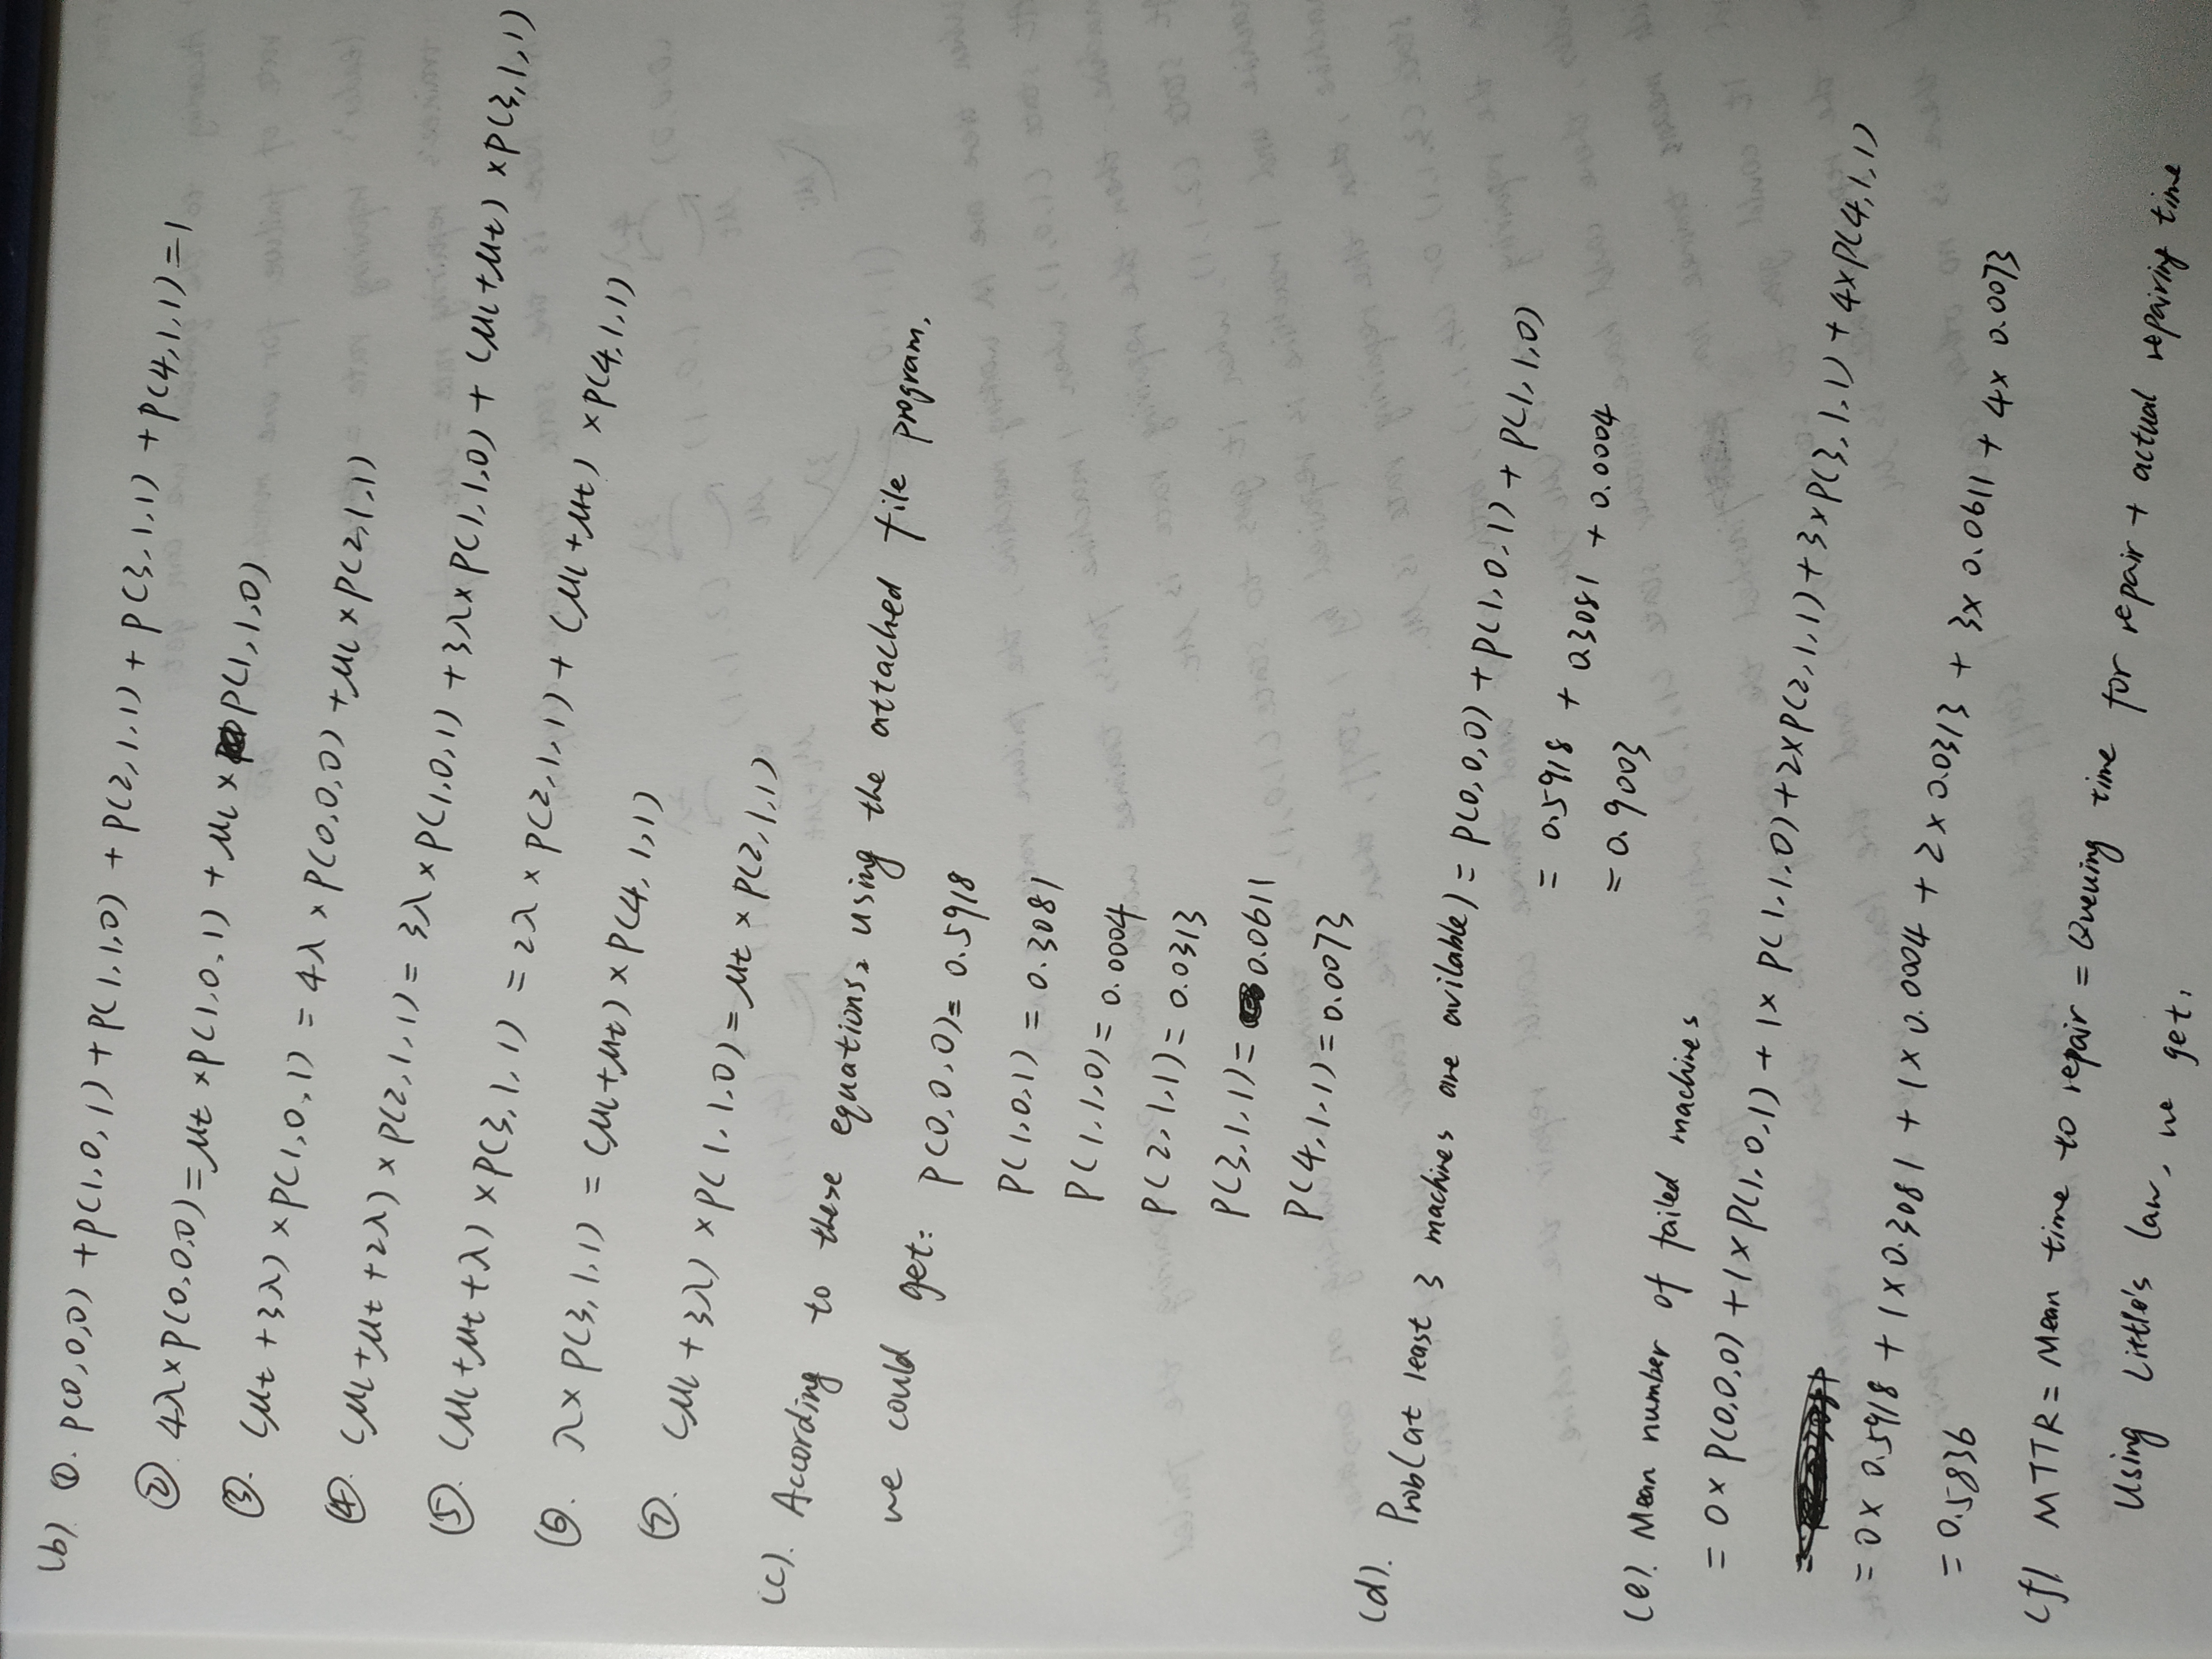 (b) ①. P(0,0,0) + P(1,0,1) + P(1,1,0) + P(2,1,1) + P(3,1,1) + P(4,1,1) = 1
② 4λ×P(0,0,0) = μt ×P(1,0,1) + μl × P(1,1,0)
③. (μt + 3λ) ×P(1,0,1) = 4λ × P(0,0,0) + μl × P(2,1,1)
④. (μl + μt + 2λ) × P(2,1,1) = 3λ × P(1,0,1) + 3λ × P(1,1,0) + (μl+μt) × P(3,1,1)
⑤. (μl + μt + λ) × P(3,1,1) = 2λ × P(2,1,1) + (μl + μt) × P(4,1,1)
⑥. λ × P(3,1,1) = (μl+μt) × P(4,1,1)
⑦. (μl + 3λ) × P(1,1,0) = μt × P(2,1,1)
(c). According to these equations, using the attached file program,
we could get: P(0,0,0) = 0.5918
P(1,0,1) = 0.3081
P(1,1,0) = 0.0004
P(2,1,1) = 0.0313
P(3,1,1) = 0.0611
P(4,1,1) = 0.0073
(d). Prob(at least 3 machines are avilable) = P(0,0,0) + P(1,0,1) + P(1,1,0)
= 0.5918 + 0.3081 + 0.0004
= 0.9003
(e). Mean number of failed machines
= 0× P(0,0,0) + 1× P(1,0,1) + 1× P(1,1,0) + 2×P(2,1,1) + 3×P(3,1,1) + 4×P(4,1,1)
= 0× 0.5918 + 1× 0.3081 + 1× 0.0004 + 2× 0.0313 + 3× 0.0611 + 4× 0.0073
= 0.5836
(f) MTTR = Mean time to repair = Queuing time for repair + actual repairing time
Using Little's law, we get,